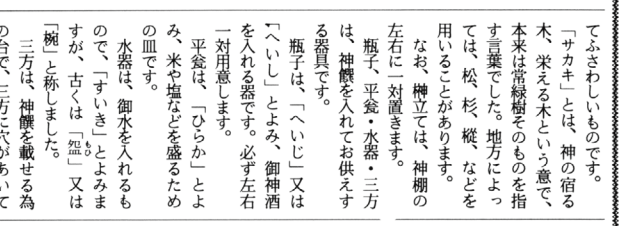 てふさわしいものです。
「サカキ」とは、神の宿る
木、栄える木という意で、
本来は常緑樹そのものを指
す言葉でした。地方によっ
ては、松、杉、樅、などを
用いることがあります。
なお、榊立ては、神棚の
左右に一対置きます。
瓶子、平瓮・水器・三方
は、神饌を入れてお供えす
る器具です。
瓶子は、「へいじ」又は
「へいし」とよみ、御神酒
を入れる器です。必ず左右
一対用意します。
平瓮は、「ひらか」とよ
み、米や塩などを盛るため
の皿です。
水器は、御水を入れるも
ので、「すいき」とよみま
すが、古くは「盌もひ」又は
「椀」と称しました。
三方は、神饌を載せる為
の台で、三方に穴があいて